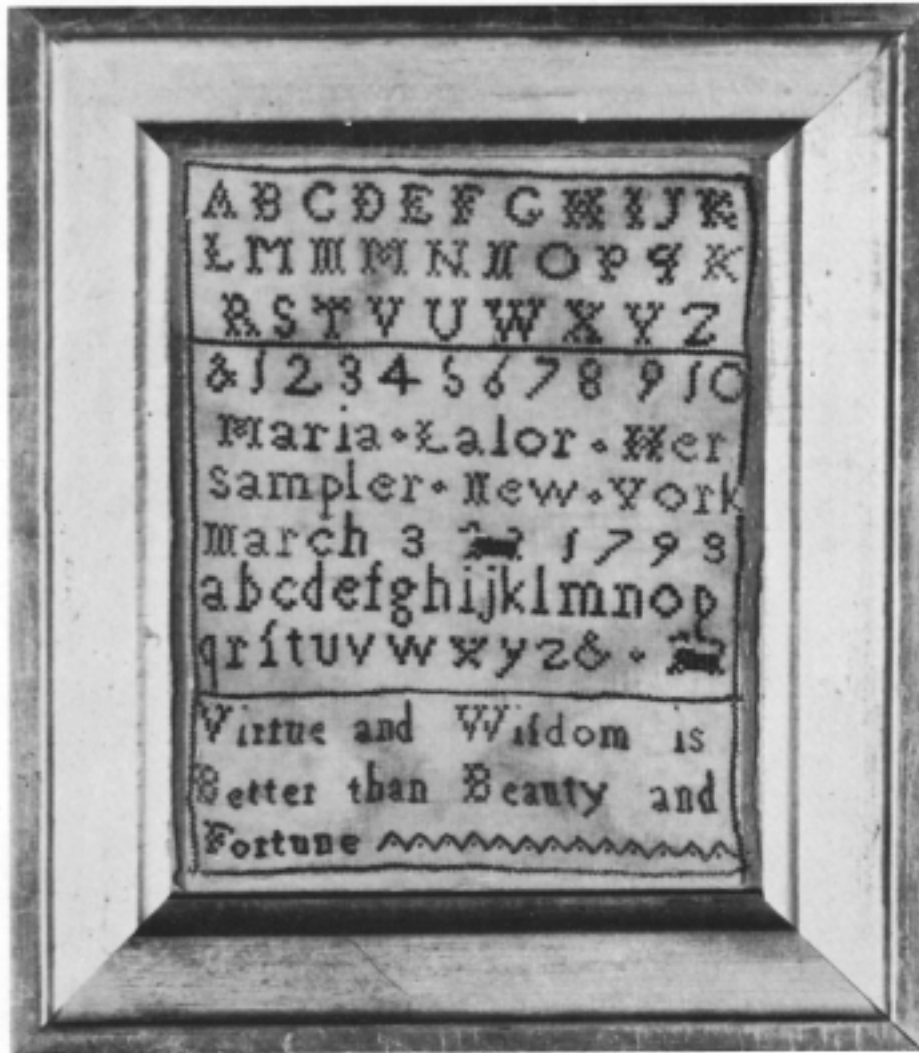 A B C D E F G H I J K
L M M M N N O P q K
R S T V U W X Y Z
& 1 2 3 4 5 6 7 8 9 10
Maria · Lalor · Her
Sampler · New · York
March 3 1793
abcdefghijklmnop
qrſtuvwxyz& ·
Virtue and Wiſdom is
Better than Beauty and
Fortune